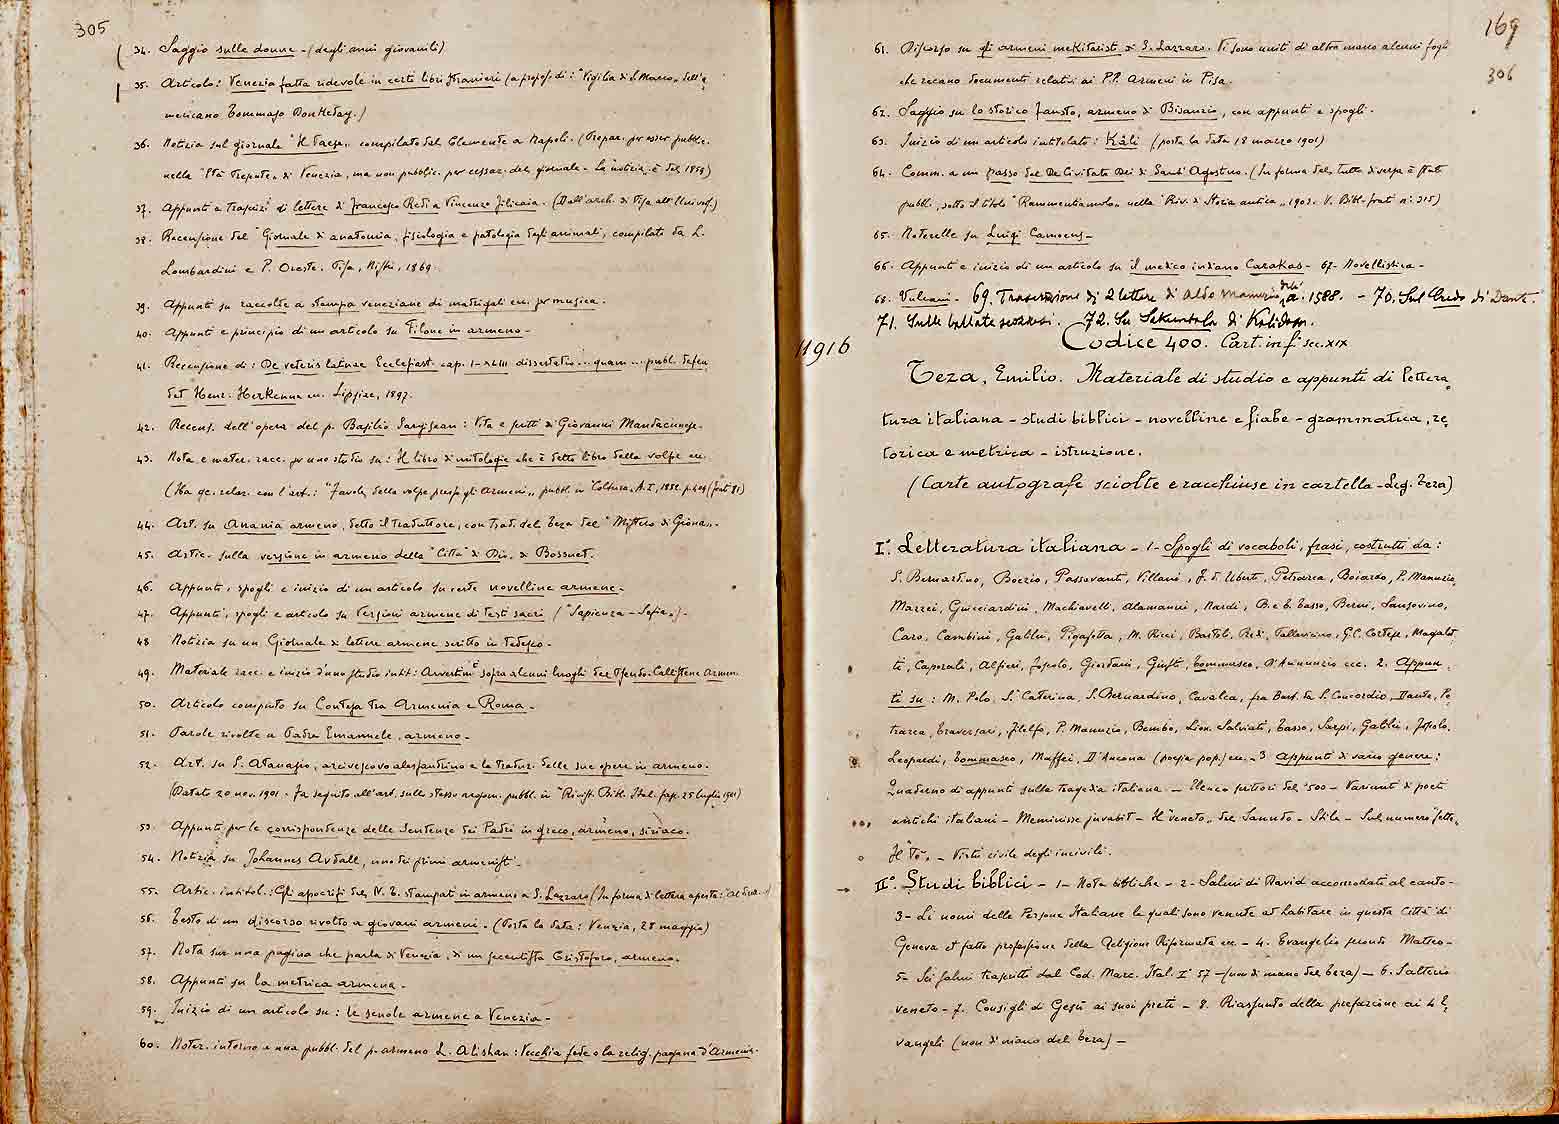 305
34. Saggio sulle donne - (degli anni giovanili)
35. Articolo: Venezia fatta ridevole in certi libri stranieri (a propos. di: "Vigilia di S. Marco„ dell'a=
mericano Tommaso
36. Notizia sul giornale "Il Paese„ compilato dal Clemente a Napoli. (Prepar. per esser pubbl.
nella di Venezia, ma non pubblic. per cessaz. del giornale - La notizia è del 1859)
37. Appunti e trascriz. di lettere di Francesco Redi a Vincenzo Filicaia. (Dall'arch. di Pisa all'Univers.)
38. Recensione del "Giornale di anatomia, fisiologia e patologia degli animali, compilato da L.
Lombardini e P. Oreste. Pisa, Nistri, 1869.
39. Appunti su raccolte a stampa veneziane di madrigali ecc. per musica.
40. Appunti e principio di un articolo su Filone in armeno -
41. Recensione di: De veteris latinae Ecclesiast. cap. I-XLIII dissertatio ... quam ... publ. defen
det Henr. Herkenne ecc. Lipsiae, 1897.
42. Recens. dell'opera del p. Basilio Sargisean: Vita e scritti di Giovanni Mandacunese.
43. Nota e mater. racc. per uno studio su: Il libro di mitologie che è detto libro della volpe ecc.
(Ha qc. relaz. con l'art.: "Favole della volpe presso gli Armeni„ pubbl. in "Cultura„ A. I, 1882
44. Art. su Anania armeno, detto il traduttore, con trad. del Teza del "Mistero di Giona„.
45. Artic. sulla versione in armeno della "Città di Dio„ di Bossuet.
46. Appunti, spogli e inizio di un articolo su certe novelline armene.
47. Appunti, spogli e articolo su Versioni armene di testi sacri ("Sapienza - Sofia„) -
48 Notizia su un Giornale di lettere armene scritto in tedesco -
49. Materiale racc. e inizio d'uno studio intit: Avvertim.ti sopra alcuni luoghi del Pseudo-Callistene Armen.
50. Articolo compiuto su Contesa tra Armenia e Roma -
51. Parole rivolte a Padre Emanuele, armeno -
52. Art. su S. Atanasio, arcivescovo alessandrino e le traduz. delle sue opere in armeno.
(Datato 20 nov. 1901 - Fa seguito all'art. sullo stesso argom. pubbl. in "Rivist. Bibl. Ital. fasc. 25 luglio 1901)
53. Appunti per le corrispondenze delle Sentenze dei Padri in greco, armeno, siriaco.
54. Notizia su Johannes Avdall, uno dei primi armenisti -
55. Artic. intitol.: Gli apocrifi del N. T. stampati in armeno a S. Lazzaro (In forma di lettera aperta:
56. Testo di un discorso rivolto a giovani armeni. (Porta la data: Venezia, 28 maggio)
57. Nota su una pagina che parla di Venezia, di un secentista Cristoforo, armeno.
58. Appunti su la metrica armena -
59. Inizio di un articolo su: le scuole armene a Venezia -
60. Noter. intorno a una pubbl. del p. armeno L. Alishan: Vecchia fede o la relig. pagana d'Armenia.
169
306
61. Discorso su gli armeni mekitaristi di S. Lazzaro. Vi sono uniti di altra mano alcuni fogli
che recano documenti relativi ai P.P. Armeni in Pisa.
62. Saggio su lo storico Fausto, armeno di Bisanzio, con appunti e spogli.
63. Inizio di un articolo intitolato: Kâli (porta la data 18 marzo 1901)
64. Comm. a un passo del De Civitate Dei di Sant'Agostino. (In forma del tutto diversa è stat
pubbl., sotto il titolo "Rammentiamolo„ nella "Riv. di Storia antica„ 1903. V. Bibl. Frati n. 315)
65. Noterelle su Luigi Camoens -
66. Appunti e inizio di un articolo su il medico indiano Carakas - 67. Novellistica -
68. Vulcani - 69. Trascrizione di 2 lettere di Aldo Manuzio dell'a. 1588. - 70. Sul Credo di Dante.
71. Sulle ballate scozzesi. 72. Su Sakuntala di Kalidasa.
11916
Codice 400. Cart. in f.° sec. XIX
Teza, Emilio. Materiale di studio e appunti di lettera=
tura italiana - studi biblici - novelline e fiabe - grammatica, re=
torica e metrica - istruzione.
(Carte autografe sciolte e racchiuse in cartella - Leg. Teza)
I°. Letteratura italiana - 1 - Spogli di vocaboli, frasi, costrutti da:
S. Bernardino, Boezio, Passavanti, Villani, F. d. Uberti, Petrarca, Boiardo, P. Manuzio,
Mazzei, Guicciardini, Machiavelli, Alamanni, Nardi, B. e T. Tasso, Berni, Sansovino,
Caro, Cambini, Galilei, Pigafetta, M. Ricci, Bartoli, Redi, Pallavicino, G.C. Cortese, Magalot
ti, Caporali, Alfieri, Foscolo, Giordani, Giusti, Tommaseo, D'Annunzio ecc. 2. Appun=
ti su: M. Polo, S. Caterina, S. Bernardino, Cavalca, fra Bart. da S. Concordio, Dante, Pe=
trarca, Traversari, Filelfo, P. Manuzio, Bembo, Lion. Salviati, Tasso, Sarpi, Galilei, Foscolo,
Leopardi, Tommaseo, Maffei, D'Ancona (poesia pop.) ecc. - 3 Appunti di vario genere:
Quaderno di appunti sulla tragedia italiana - Elenco scrittori del '500 - Varianti di poeti
antichi italiani - Meminisse juvabit - Il veneto„ del Sanudo - Stile - Sul numero sette.
Il "To„ - Virtù civile degli incivili.
II°. Studi biblici - 1 - Note bibliche - 2 - Salmi di David accomodati al canto -
3 - Li nomi delle Persone Italiane le quali sono venute ad habitare in questa Città di
Geneva et fatto professione della Religione Riformata ecc. - 4. Evangelio secondo Matteo -
5 - Sei salmi trascritti dal Cod. Marc. Ital. I° 57 - (non di mano del Teza) - 6. Salterio
veneto - 7. Consigli di Gesù ai suoi preti - 8. Riassunto della prefazione ai 4 E=
vangeli (non di mano del Teza) -